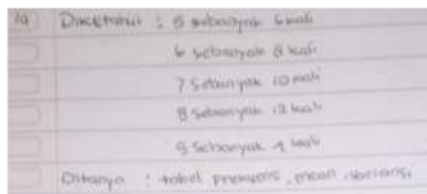 Diketahui : 5 sebanyak 6 kali
6 sebanyak 8 kali
7 sebanyak 10 kali
8 sebanyak 12 kali
9 sebanyak 4 kali
Ditanya : tabel frekuensi, mean, variansi